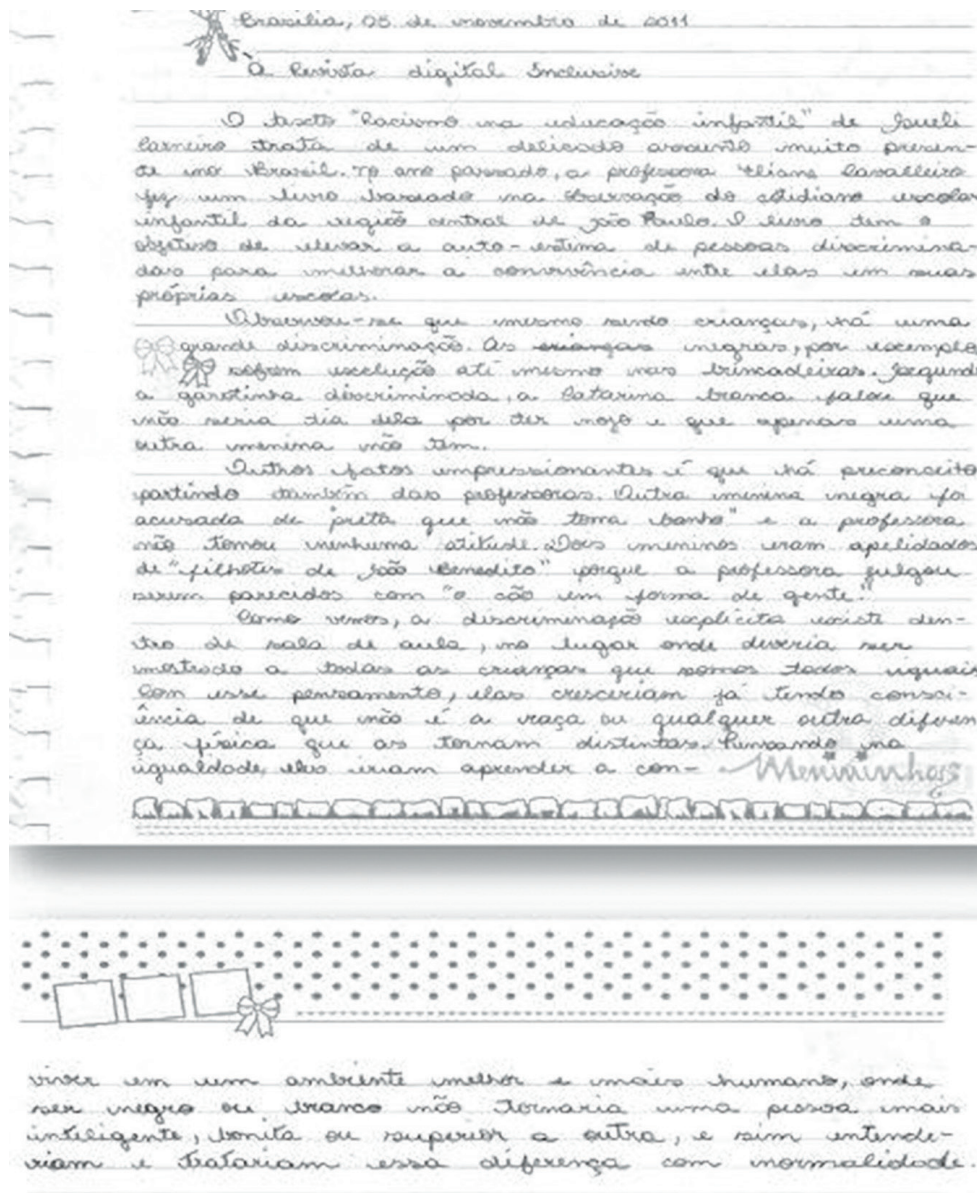 Brasília, 05 de novembro de 2011
À Revista digital Inclusive
O texto "Racismo na educação infantil" de Sueli
Carneiro trata de um delicado assunto muito presen-
te no Brasil. No ano passado, a professora Eliane Cavalleiro
fez um livro baseado na observação do cotidiano escolar
infantil da região central de São Paulo. O livro tem o
objetivo de elevar a auto-estima de pessoas discrimina-
das para melhorar a convivência entre elas em suas
próprias escolas.
Observou-se que mesmo sendo crianças, há uma
grande discriminação. As crianças negras, por exemplo
sofrem exclução até mesmo nas brincadeiras. Segundo
a garotinha discriminada, a Catarina branca falou que
não seria tia dela por ter nojo e que apenas uma
outra menina não tem.
Outros fatos impressionantes é que há preconceito
partindo também das professoras. Outra menina negra foi
acusada de "preta que não toma banho" e a professora
não tomou nenhuma atitude. Dois meninos eram apelidados
de "filhotes de São Benedito" porque a professora julgou
serem parecidos com "o cão em forma de gente."
Como vemos, a discriminação explícita existe den-
tro de sala de aula, no lugar onde deveria ser
mostrado a todas as crianças que somos todos iguais
Com esse pensamento, elas cresceriam já tendo consci-
ência de que não é a raça ou qualquer outra diferen
ça física que as tornam distintas. Pensando na
igualdade, eles iriam aprender a con-
Menininhas
viver em um ambiente melhor e mais humano, onde
ser negro ou branco não tornaria uma pessoa mais
inteligente, bonita ou superior a outra, e sim entende-
riam e tratariam essa diferença com normalidade.